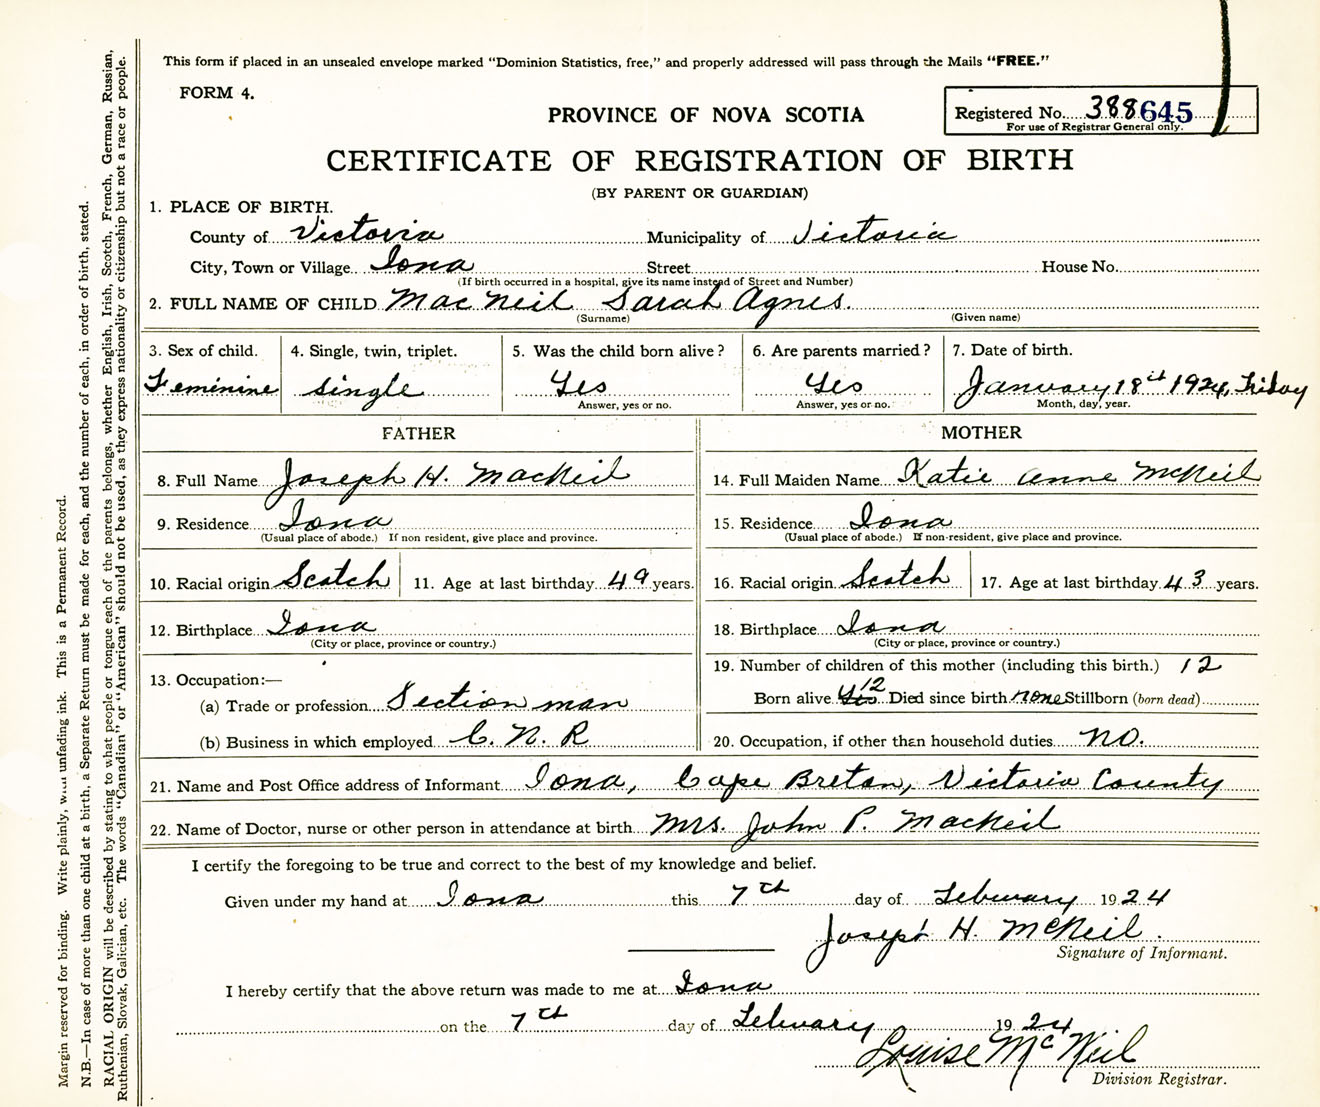 This form if placed in an unsealed envelope marked "Dominion Statistics, free," and properly addressed will pass through the Mails "FREE."
FORM 4.
PROVINCE OF NOVA SCOTIA
Registered No. 388645
For use of Registrar General only.
CERTIFICATE OF REGISTRATION OF BIRTH
(BY PARENT OR GUARDIAN)
1. PLACE OF BIRTH.
County of Victoria Municipality of Victoria
City, Town or Village Iona Street House No.
(If birth occurred in a hospital, give its name instead of Street and Number)
2. FULL NAME OF CHILD MacNeil Sarah Agnes.
(Surname) (Given name)
3. Sex of child. 4. Single, twin, triplet. 5. Was the child born alive? 6. Are parents married? 7. Date of birth.
Feminine single Yes Yes January 18th 1924, Friday
Answer, yes or no. Answer, yes or no. Month, day, year.
FATHER MOTHER
8. Full Name Joseph H. MacNeil 14. Full Maiden Name Katie Anne McNeil
9. Residence Iona 15. Residence Iona
(Usual place of abode.) If non resident, give place and province. (Usual place of abode.) If non-resident, give place and province.
10. Racial origin Scotch 11. Age at last birthday 49 years. 16. Racial origin Scotch 17. Age at last birthday 43 years.
12. Birthplace Iona 18. Birthplace Iona
(City or place, province or country.) (City or place, province or country.)
19. Number of children of this mother (including this birth.) 12
13. Occupation:—
(a) Trade or profession Section man Born alive Yes 12 Died since birth none Stillborn (born dead)
(b) Business in which employed C. N. R 20. Occupation, if other than household duties no.
21. Name and Post Office address of Informant Iona, Cape Breton, Victoria County
22. Name of Doctor, nurse or other person in attendance at birth Mrs. John P. MacNeil
I certify the foregoing to be true and correct to the best of my knowledge and belief.
Given under my hand at Iona this 7th day of February 1924
Joseph H. McNeil.
Signature of Informant.
I hereby certify that the above return was made to me at Iona
on the 7th day of February 1924
Louise McNeil
Division Registrar.
Margin reserved for binding. Write plainly, with unfading ink. This is a Permanent Record.
N.B.—In case of more than one child at a birth, a Separate Return must be made for each, and the number of each, in order of birth, stated.
RACIAL ORIGIN will be described by stating to what people or tongue each of the parents belongs, whether English, Irish, Scotch, French, German, Russian,
Ruthenian, Slovak, Galician, etc. The words "Canadian" or "American" should not be used, as they express nationality or citizenship but not a race or people.